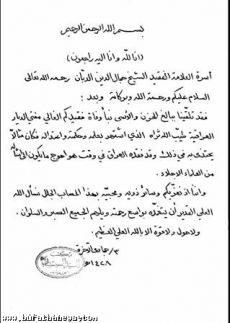 بسم الله الرحمن الرحيم
(إنا لله وإنا إليه راجعون)
أسرة العلامة الفقيد الشيخ جمال الدين الدبان رحمه الله تعالى
السلام عليكم ورحمة الله وبركاته وبعد:
فقد تلقينا ببالغ الحزن والأسى نبأ وفاة فقيدكم الغالي مفتي الديار
العراقية طيب الله ثراه الذي علماً وحكمة واعتدالاً فكان مثالاً
يحتذى به في ذلك وقد فقده العراق في وقت هو أحوج ما يكون إلى أمثاله
من العلماء الأجلاء.
وإننا إذ نعزيكم وسائر ذويه ومحبيه بهذا المصاب الجلل نسأل الله
العلي القدير أن يتغمده بواسع رحمته ويلهم الجميع الصبر والسلوان.
ولا حول ولا قوة إلا بالله العلي العظيم
٣/جمادى الآخرة
١٤٢٨هـ
www.hurathahegay.com